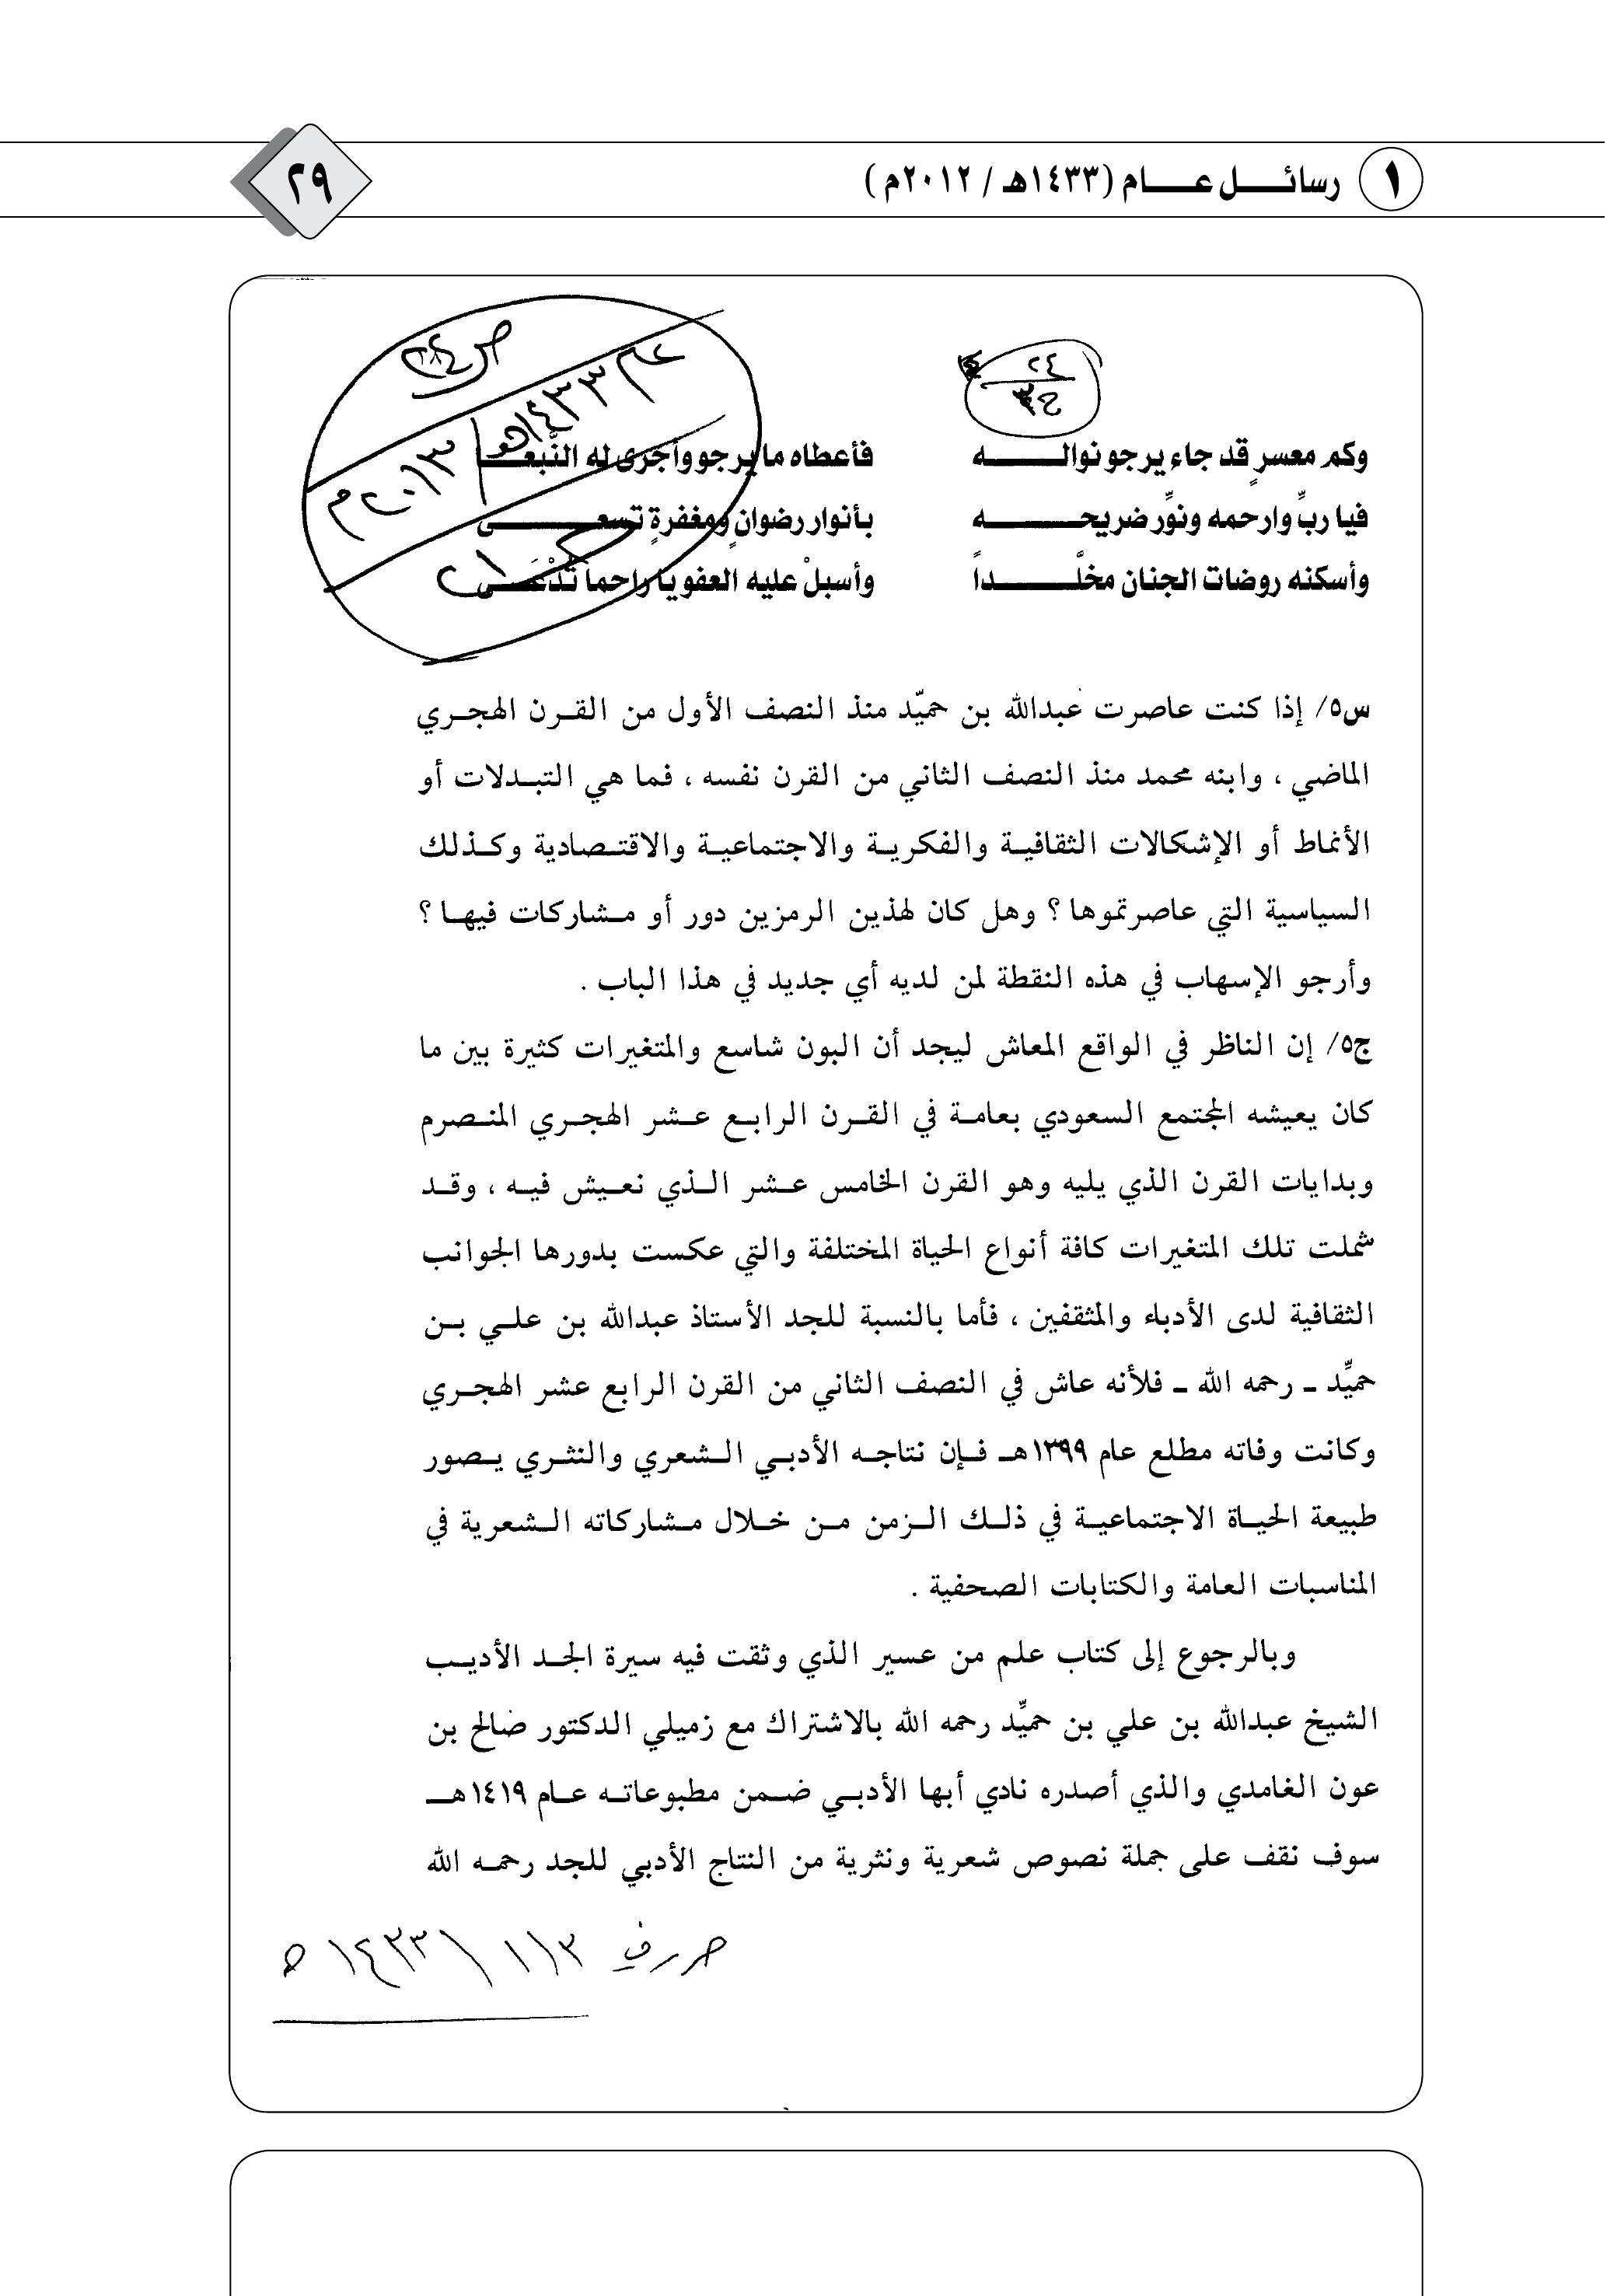 ١ رسائل عام (١٤٣٣هـ / ٢٠١٢م)
٢٩
ص
عام ١٤٣٣هـ
٢٠١٣م
٢٤
وكم معسرٍ قد جاء يرجو نواله فأعطاه ما يرجو وأجرى له النَّبعا
فيا ربِّ وارحمه ونوِّر ضريحه بأنوار رضوانٍ ومغفرةٍ تسعى
وأسكنه روضات الجنان مخلَّداً وأسبلْ عليه العفو يا راحماً تُدْعَى
س٥/ إذا كنت عاصرت عبدالله بن حميّد منذ النصف الأول من القرن الهجري
الماضي ، وابنه محمد منذ النصف الثاني من القرن نفسه ، فما هي التبدلات أو
الأنماط أو الإشكالات الثقافية والفكرية والاجتماعية والاقتصادية وكذلك
السياسية التي عاصرتموها ؟ وهل كان لهذين الرمزين دور أو مشاركات فيها ؟
وأرجو الإسهاب في هذه النقطة لمن لديه أي جديد في هذا الباب .
ج٥/ إن الناظر في الواقع المعاش ليجد أن البون شاسع والمتغيرات كثيرة بين ما
كان يعيشه المجتمع السعودي بعامة في القرن الرابع عشر الهجري المنصرم
وبدايات القرن الذي يليه وهو القرن الخامس عشر الذي نعيش فيه ، وقد
شملت تلك المتغيرات كافة أنواع الحياة المختلفة والتي عكست بدورها الجوانب
الثقافية لدى الأدباء والمثقفين ، فأما بالنسبة للجد الأستاذ عبدالله بن علي بن
حميِّد ـ رحمه الله ـ فلأنه عاش في النصف الثاني من القرن الرابع عشر الهجري
وكانت وفاته مطلع عام ١٣٩٩هـ فإن نتاجه الأدبي الشعري والنثري يصور
طبيعة الحياة الاجتماعية في ذلك الزمن من خلال مشاركاته الشعرية في
المناسبات العامة والكتابات الصحفية .
وبالرجوع إلى كتاب علم من عسير الذي وثقت فيه سيرة الجد الأديب
الشيخ عبدالله بن علي بن حميِّد رحمه الله بالاشتراك مع زميلي الدكتور صالح بن
عون الغامدي والذي أصدره نادي أبها الأدبي ضمن مطبوعاته عام ١٤١٩هـ
سوف نقف على جملة نصوص شعرية ونثرية من النتاج الأدبي للجد رحمه الله
١٤٣٣هـ